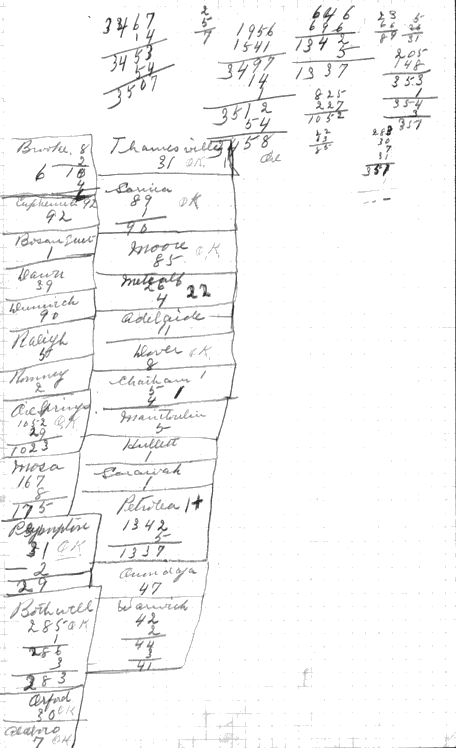 3467
14
3453
54
3507
2
5
7
1956
1541
3497
14
1
3512
54
3458
646
696
1342
5
1337
825
227
1052
22
63
85
23
66
89
5
26
31
205
148
353
1
354
3
351
283
30
7
31
351
Brooke 8
2
6 10
4
6
Euphemia 92
92
Bosanquet
1
Dawn
39
Dunwich
90
Raleigh
5
Romney
2
Oil Springs
1052 OK
29
1023
Mosa
167
8
175
Plympton
31 OK
2
29
Bothwell
285 OK
1
286
3
283
Orford
30 OK
7 OK
Thamesville
31 OK
Sarnia
89 OK
1
90
Moore OK
85
Metcalf
26
4 22
Adelaide
11
Dover OK
8
Chatham 1
5 1
4
Manitoulin
5
Hullett
1
Sarawak
1
Petrolea 1+
1342
5
1337
Onondaga
47
Warwick
42
2
44
3
41